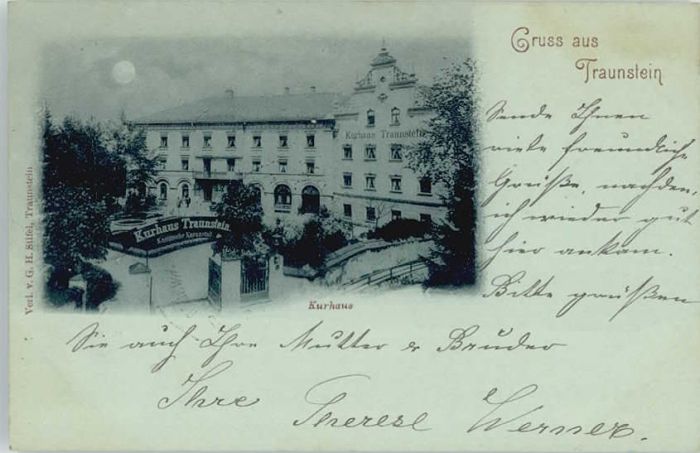 Gruss aus
Traunstein
Sende Ihnen
viele freundliche
Grüße, nachdem
ich wieder gut
hier ankam.
Bitte grüßen
Sie auch Ihre Mutter & Bruder
Ihre Therese Werner.
Kurhaus Traunstein
Kurhaus Traunstein.
Kurhaus
Verl. v. G. H. Stifel, Traunstein